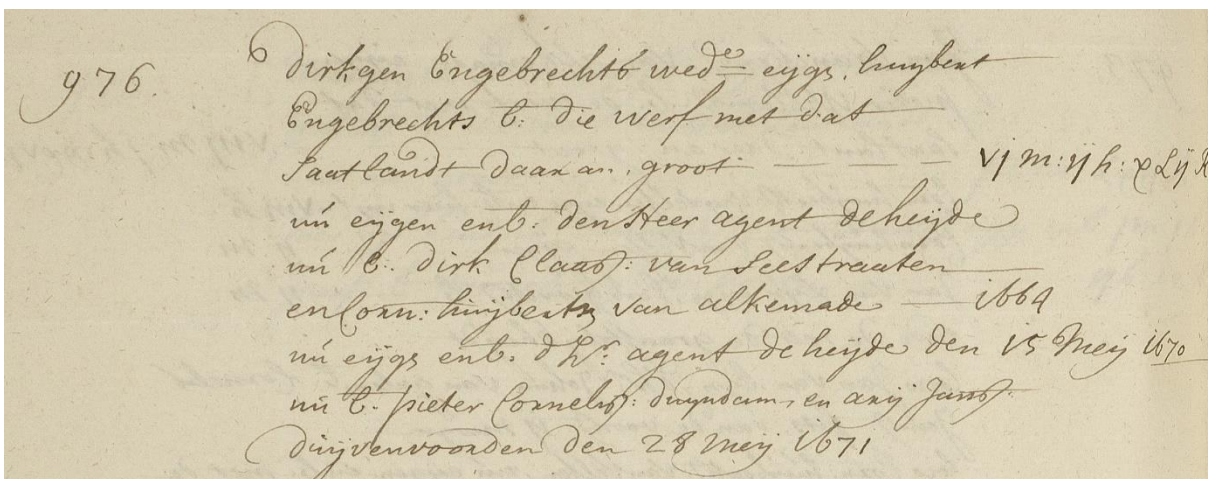 976. Dirkgen Engebrechts wed.e eijgr. huijbert
Engebrechts b: die werf met dat
Saatlandt daar an. groot — — — vj m: ij h: xLij R
nú eijgen en b: den Heer agent de heijde
nú b: dirk Claasz: van Seestraaten
en Corn: huijbertsz van alkemade — 1664
nú eijgr en b: d Hr. agent de heijde den 15 Meij 1670
nú b. pieter Cornelisz: duijndam, en arij Jansz:
duijvenvoorden den 28 Meij 1671